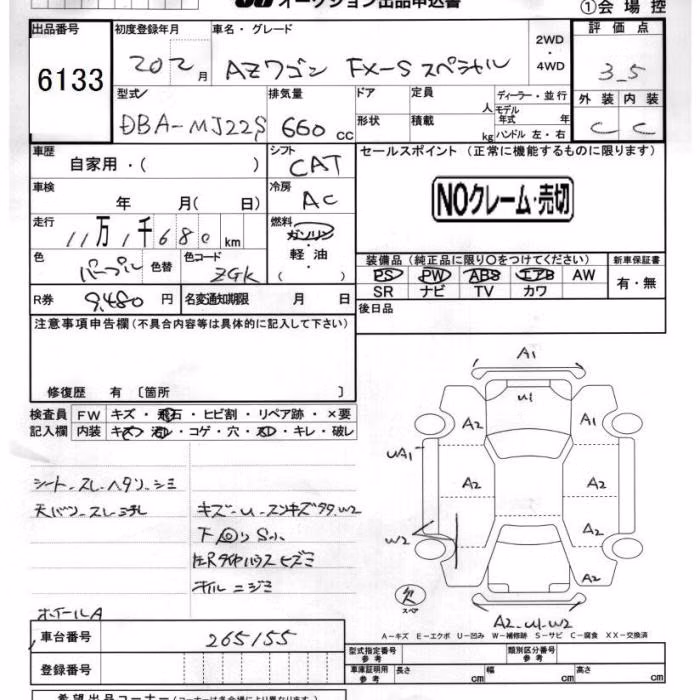 オークション出品申込書
①会場控
出品番号 6133
初度登録年月 20年2月
車名・グレード AZワゴン FX-Sスペシャル
2WD・4WD
評価点 3.5
外装 C 内装 C
型式 DBA-MJ22S
排気量 660cc
ドア 形状
定員 人 積載 kg
ディーラー・並行
モデル年式 年
ハンドル 左・右
車歴 自家用・( )
シフト CAT
セールスポイント (正常に機能するものに限ります)
NOクレーム・売切
車検 年 月( 日)
冷房 AC
走行 11万1千680km
燃料 ガソリン・軽油・( )
色 パープル 色替
色コード ZGK
装備品 (純正品に限り○をつけてください)
PS PW ABS エアB AW
SR ナビ TV カワ
新車保証書 有・無
R券 9,480円
名変通知期限 月 日
後日品
注意事項申告欄(不具合内容等は具体的に記入して下さい)
修復歴 有〔箇所 〕
検査員記入欄
FW キズ・飛石・ヒビ割・リペア跡・×要
内装 キズ・汚レ・コゲ・穴・スレ・キレ・破レ
シート スレ ヘタリ シミ
天バリ スレ 汚レ
キズ U スリキズ 99 W2
下回リ S小
左Rタイヤハウス ヒズミ
オイルニジミ
ホイールA
A1
U1
A2 A1
UA1
A2 A2
A2
W2
A2
欠 スペア
A2 U1 W2
A-キズ E-エクボ U-凹み W-補修跡 S-サビ C-腐食 XX-交換済
車台番号 265155
型式指定番号 参考
類別区分番号 参考
登録番号
車庫証明用 参考 長さ cm 幅 cm 高さ cm
希望出品コーナー(コーナーは各会場により異なります)